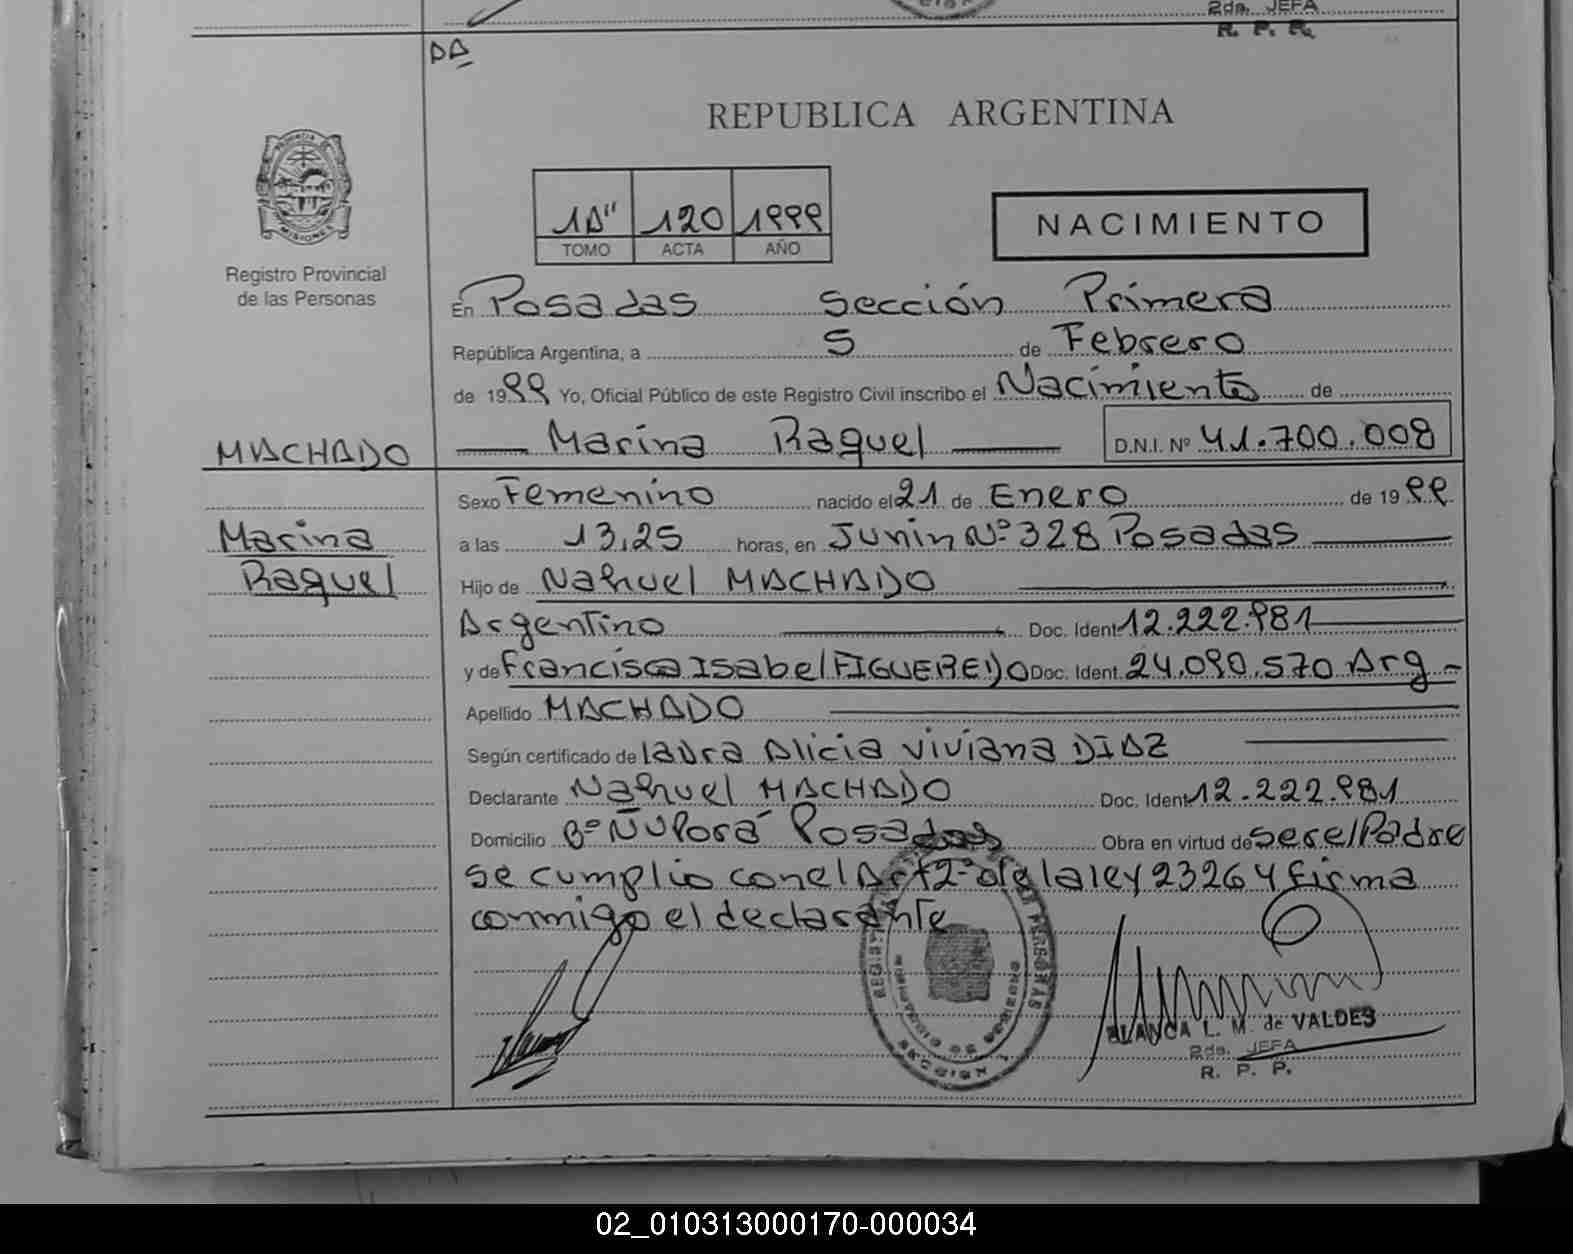 2da. JEFA
R. P. P.
DA
REPUBLICA ARGENTINA
PROVINCIA DE
MISIONES
Registro Provincial
de las Personas
1A" 120 1999
TOMO ACTA AÑO
NACIMIENTO
En Posadas Sección Primera
República Argentina, a 5 de Febrero
de 1999 Yo, Oficial Público de este Registro Civil inscribo el Nacimiento de
MACHADO
Marina Raquel D.N.I. Nº 41.700.008
Sexo Femenino nacido el 21 de Enero de 1999
Marina
Raquel
a las 13,25 horas, en Junin Nº 328 Posadas
Hijo de Nahuel MACHADO
Argentino Doc. Ident 12.222.981
y de Francisca Isabel FIGUEREDO Doc. Ident. 24.090.570 Arg
Apellido MACHADO
Según certificado de Laura Alicia Viviana DIAZ
Declarante Nahuel MACHADO Doc. Ident 12.222.981
Domicilio Bº Ñu Porá Posadas Obra en virtud de ser el Padre
se cumplio con el Art 2º de la ley 23264 firma
conmigo el declarante
BLANCA L. M. de VALDES
2da. JEFA
R. P. P.
02_010313000170-000034